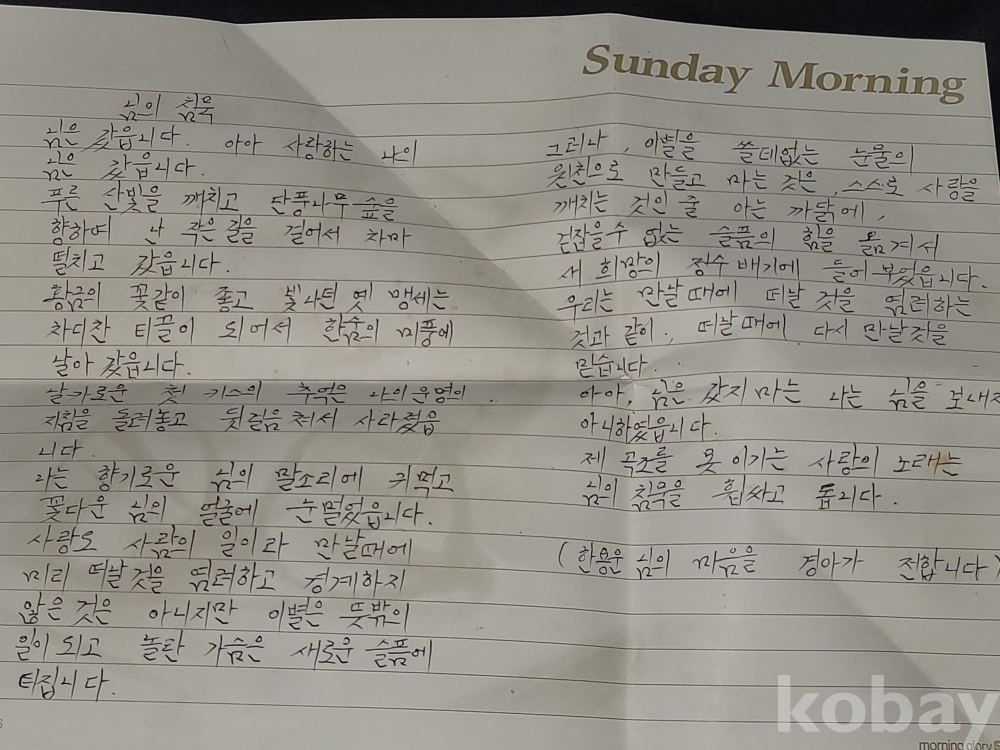 Sunday Morning
님의 침묵
님은 갔읍니다. 아아 사랑하는 나의
님은 갔읍니다.
푸른 산빛을 깨치고 단풍나무숲을
향하여 난 작은 길을 걸어서 차마
떨치고 갔읍니다.
황금의 꽃같이 좋고 빛나던 옛 맹세는
차디찬 티끌이 되어서 한숨의 미풍에
날아 갔읍니다.
날카로운 첫 키스의 추억은 나의 운명의
지침을 돌려놓고 뒷걸음쳐서 사라졌읍
니다.
나는 향기로운 님의 말소리에 귀먹고
꽃다운 님의 얼굴에 눈멀었읍니다.
사랑도 사람의 일이라 만날때에
미리 떠날 것을 염려하고 경계하지
않은 것은 아니지만 이별은 뜻밖의
일이 되고 놀란 가슴은 새로운 슬픔에
터집니다.
그러나, 이별을 쓸데없는 눈물의
원천으로 만들고 마는 것은, 스스로 사랑을
깨치는 것인 줄 아는 까닭에,
걷잡을수 없는 슬픔의 힘을 옮겨서
새 희망의 정수배기에 들어부었읍니다.
우리는 만날때에 떠날 것을 염려하는
것과 같이, 떠날때에 다시 만날것을
믿습니다.
아아, 님은 갔지마는 나는 님을 보내지
아니하였읍니다.
제 곡조를 못 이기는 사랑의 노래는
님의 침묵을 휩싸고 돕니다.
(한용운 님의 마음을 경아가 전합니다)
kobay
morning glory